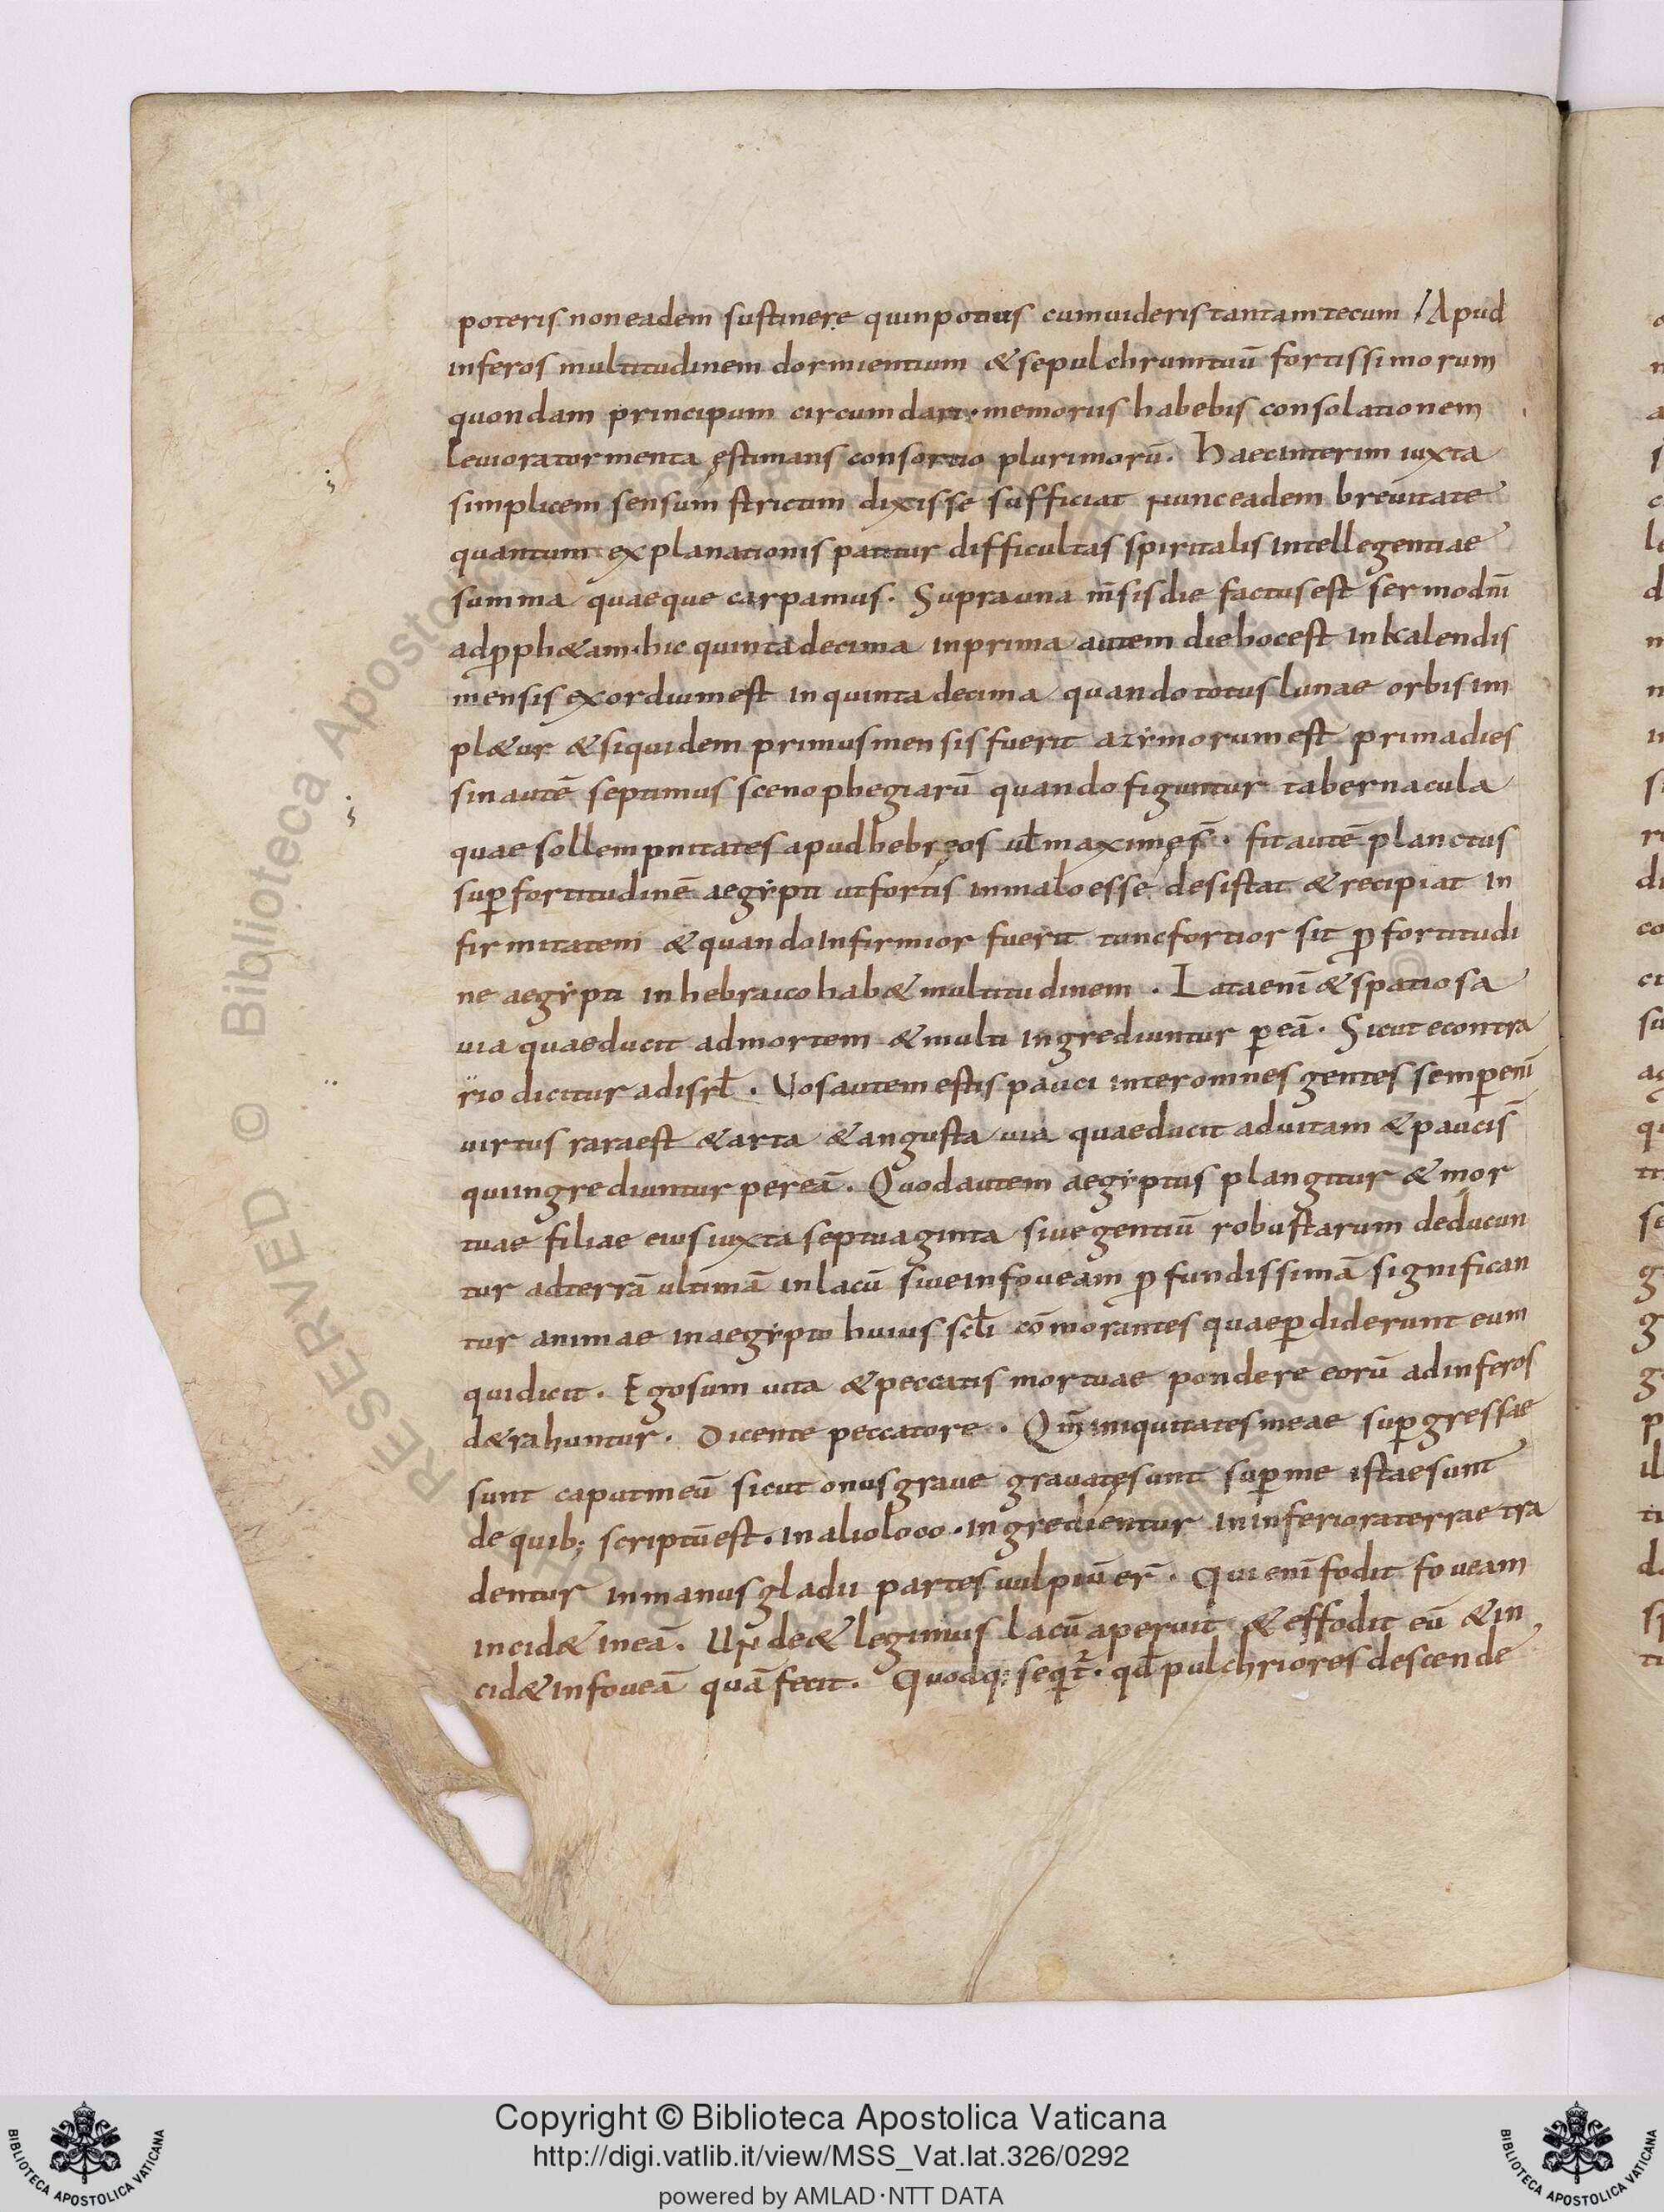 poteris non eadem sustinere quin potius cum uideris tantam tecum /Apud
inferos multitudinem dormientium & sepulchrum tuū fortissimorum
quondam principum circumdari · memoriis habebis consolationem
leuiora tormenta ęstimans consortio plurimorū. Haec interim iuxta
simplicem sensum strictim dixisse sufficiat nunc eadem breuitate
quantum explanationis patitur difficultas spiritalis intellegentiae
summa quaeque carpamus. Supra una m̄sis die factus est sermo dn̄i
ad ꝓph&am · hic quinta decima in prima autem die hoc est in kalendis
mensis exordium est in quinta decima quando totus lunae orbis im
pl&ur & siquidem primus mensis fuerit azẏmorum est prima dies
sin autē septimus scenophegiarū quando figuntur tabernacula
quae sollempnitates apud hebręos uł maximę s̄. fit autē planctus
suꝑ fortitudinē aegẏpti ut fortis in malo esse desistat & recipiat in
firmitatem & quando infirmior fuerit tunc fortior sit ꝓ fortitudi
ne aegẏpti in hebraico hab& multitudinem. Lata enī & spatiosa
uia quae ducit ad mortem & multi ingrediuntur ꝑ eā. Sicut econtra
rio dicitur ad isrł. Uos autem estis pauci inter omnes gentes semꝑ enī
uirtus rara est & arta & angusta uia quae ducit ad uitam & pauci s̄
qui ingrediuntur per eā. Quod autem aegẏptus plangitur & mor
tuae filiae eius iuxta septuaginta siue gentiū robustarum deducun
tur ad terrā ultimā in lacū siue in foueam ꝓfundissimā significan
tur animae in aegẏpto huius scłi cōmorantes quae ꝑdiderunt eum
qui dicit. Ego sum uita & peccatis mortuae pondere eorū ad inferos
d&rahuntur. Dicente peccatore. Qm̄ iniquitates meae suꝑgressae
sunt caput meū sicut onus graue grauatę sunt suꝑ me istae sunt
de quib; scriptū est. in alio loco · ingredientur in inferiora terrae tra
dentur in manus gladii partes uulpiū er̄. Qui enī fodit foueam
incid& in eā. Unde & legimus lacū aperuit & effodit eū & in
cid& in foueā quā fecit. Quodq; seqt̄. qđ pulchriores descende
Copyright © Biblioteca Apostolica Vaticana
http://digi.vatlib.it/view/MSS_Vat.lat.326/0292
powered by AMLAD·NTT DATA